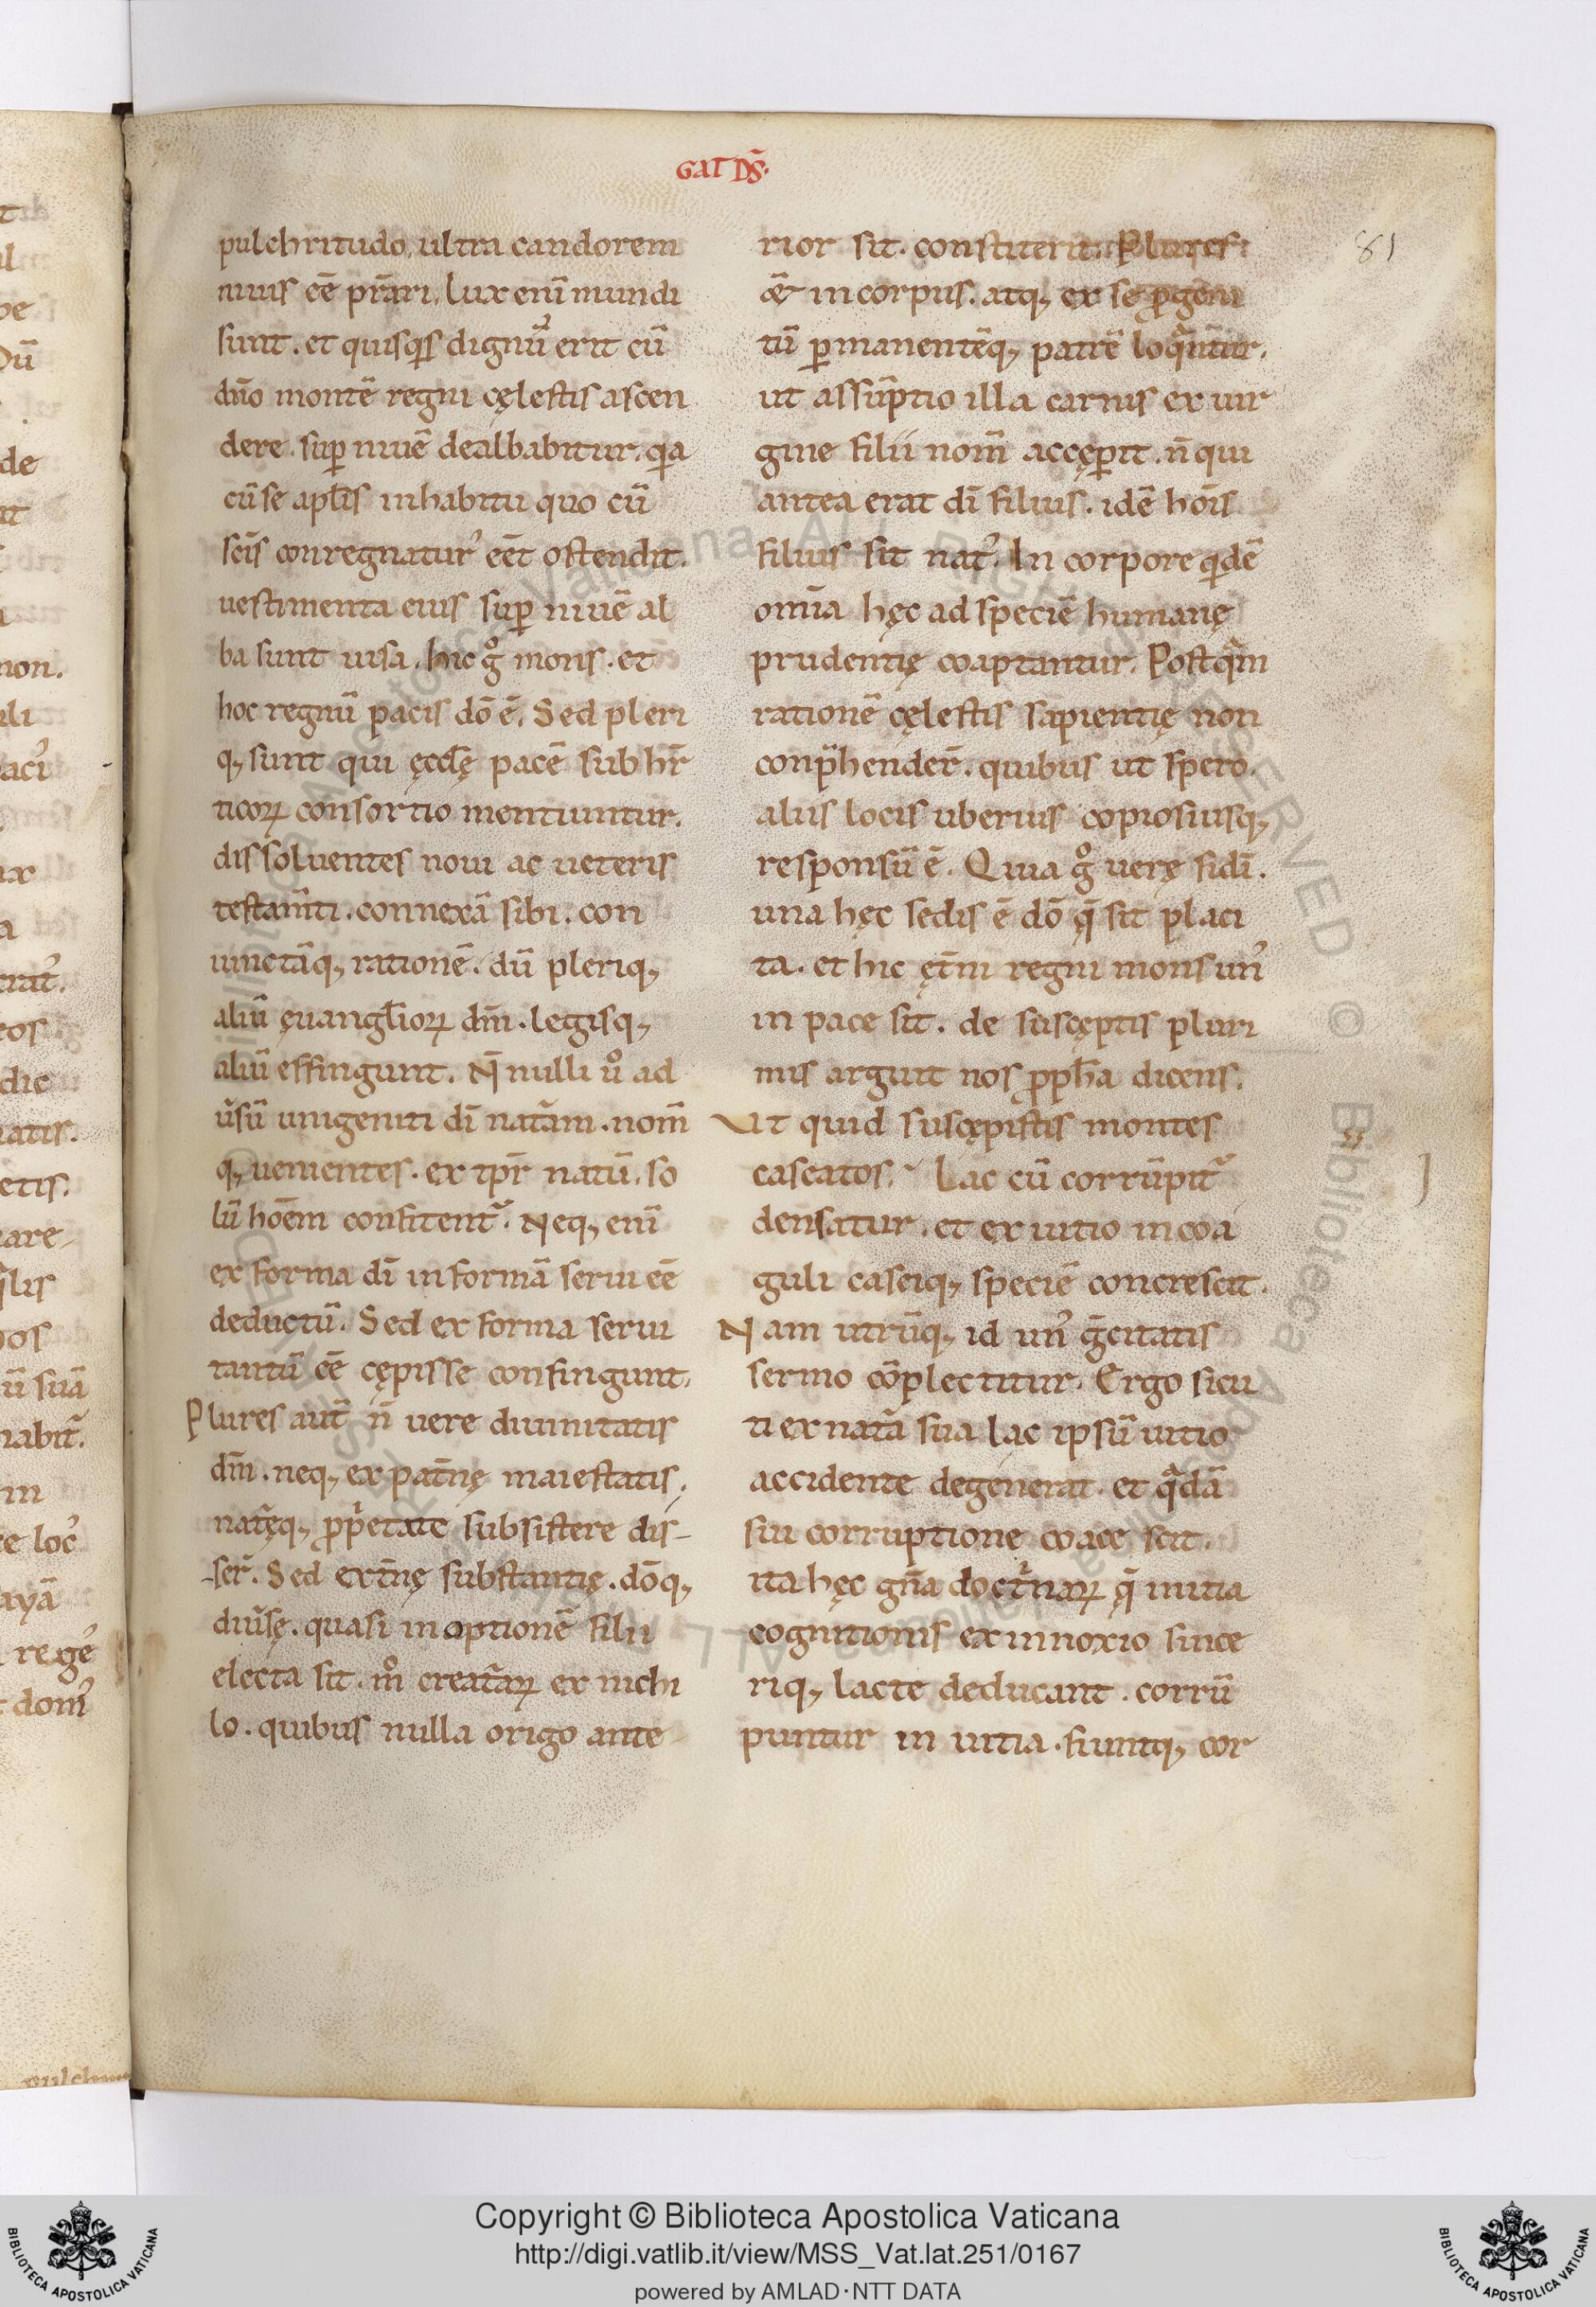 GAT DS̄.
81
pulchritudo. ultra candorem
niuis eē pr̄ari. Lux enī mundi
sunt. et quisq̄s dignus̄ erit cū
dn̄o montē regni cęlestis ascen
dere. sup̄ niuē dealbabitur. q̄a
cū se apl̄is in habitu quo cū
sc̄is conregnatur᾽ eēt ostendit.
uestimenta eius sup̄ niuē al
ba sunt uisa. hic gͦ mons. et
hoc regnū pacis dō ē. Sed pleri
q; sunt qui ęcclę̄ pacē sub hr̄
ticoꝝ consortio mentiuntur.
dissoluentes noui ac ueteris
testam̄ti. connexā sibi. con
iunctāq; rationē. dū pleriq;
aliū ęuangl̄ioꝝ dm̄. legisq;
aliū effingunt. N̄ nulli uͦ ad
ūsū unigeniti dī natām. nom̄
q; uenientes. ex tp̄r natū. so
lū hoēm confitent᾽. Neq; enī
ex forma dī in formā serui eē
deductū. Sed ex forma serui
tantū eē cępisse confingunt.
Plures aut̄ n̄ uere diuinitatis
dm̄. neq; ex pat̄nę maiestatis.
nat̄ęq; ꝓp̄etate subsistere dis-
-ser̄. Sed ext̄nę substantię. dōq;
diūsę. quasi in optionē filii
electa sit. mͦ creat̄aꝝ ex nichi
lo. quibus nulla origo ante
rior sit. constiterit. Plures
æ in corpus. atq; ex se ꝓgeni
tū ꝑmanentēq; patrē loq̄ntur.
ut assūptio illa carnis ex uir
gine filii nom̄ accęꝑit. n̄ qui
antea erat dī filius. idē hoīs
filius sit nat᾽. In corpore q̄dē
omīa hęc ad speciē humanę
prudentię coaptantur. Postq̄m
rationē cęlestis sapientię non
conp̄hender̄. quibus ut spero.
aliis locis uberius copiosiusq;
responsū ē. Quia gͦ uerę fidī.
una hęc sedis ē dō q̄ sit placi
ta. et hic ęt̄ni regni mons un᾽
in pace sit. de suscęptis pluri
mis arguit nos ꝓph̄a dicens.
Ut quid suscępistis montes
caseatos. Lac cū corrūpit᾽
densatur. et ex uitio in coa
guli caseiq; speciē concrescit.
Nam utrūq; id un᾽ gc̄itatis
sermo cōplectitur. Ergo sicu
ti ex nat̄a sua lac ipsū uitio
accidente degenerat. et q̄dā
sui corruptione coace scit.
ita hęc gn̄a doct̄naꝝ q̄ initia
cognitionis ex innoxio since
riq; lacte deducant. corrū
puntur in uitia. fiuntq; cor
Copyright © Biblioteca Apostolica Vaticana
http://digi.vatlib.it/view/MSS_Vat.lat.251/0167
powered by AMLAD · NTT DATA